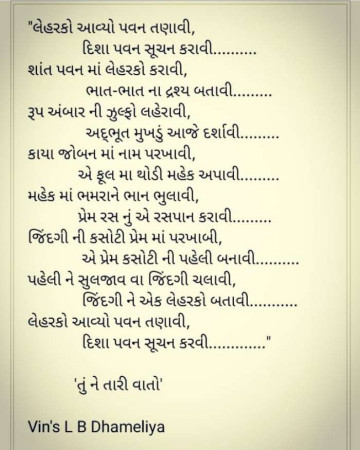 "લેહરકો આવ્યો પવન તણાવી,
દિશા પવન સૂચન કરાવી..........
શાંત પવન માં લેહરકો કરાવી,
ભાત-ભાત ના દ્રશ્ય બતાવી.........
રૂપ અંબાર ની ઝુલ્ફો લહેરાવી,
અદ્ભૂત મુખડું આજે દર્શાવી.........
કાયા જોબન માં નામ પરખાવી,
એ ફૂલ મા થોડી મહેક અપાવી.........
મહેક માં ભમરાને ભાન ભુલાવી,
પ્રેમ રસ નું એ રસપાન કરાવી.........
જિંદગી ની કસોટી પ્રેમ માં પરખાબી,
એ પ્રેમ કસોટી ની પહેલી બનાવી..........
પહેલી ને સુલજાવ વા જિંદગી ચલાવી,
જિંદગી ને એક લેહરકો બતાવી...........
લેહરકો આવ્યો પવન તણાવી,
દિશા પવન સૂચન કરવી............."
'તું ને તારી વાતો'
Vin's L B Dhameliya